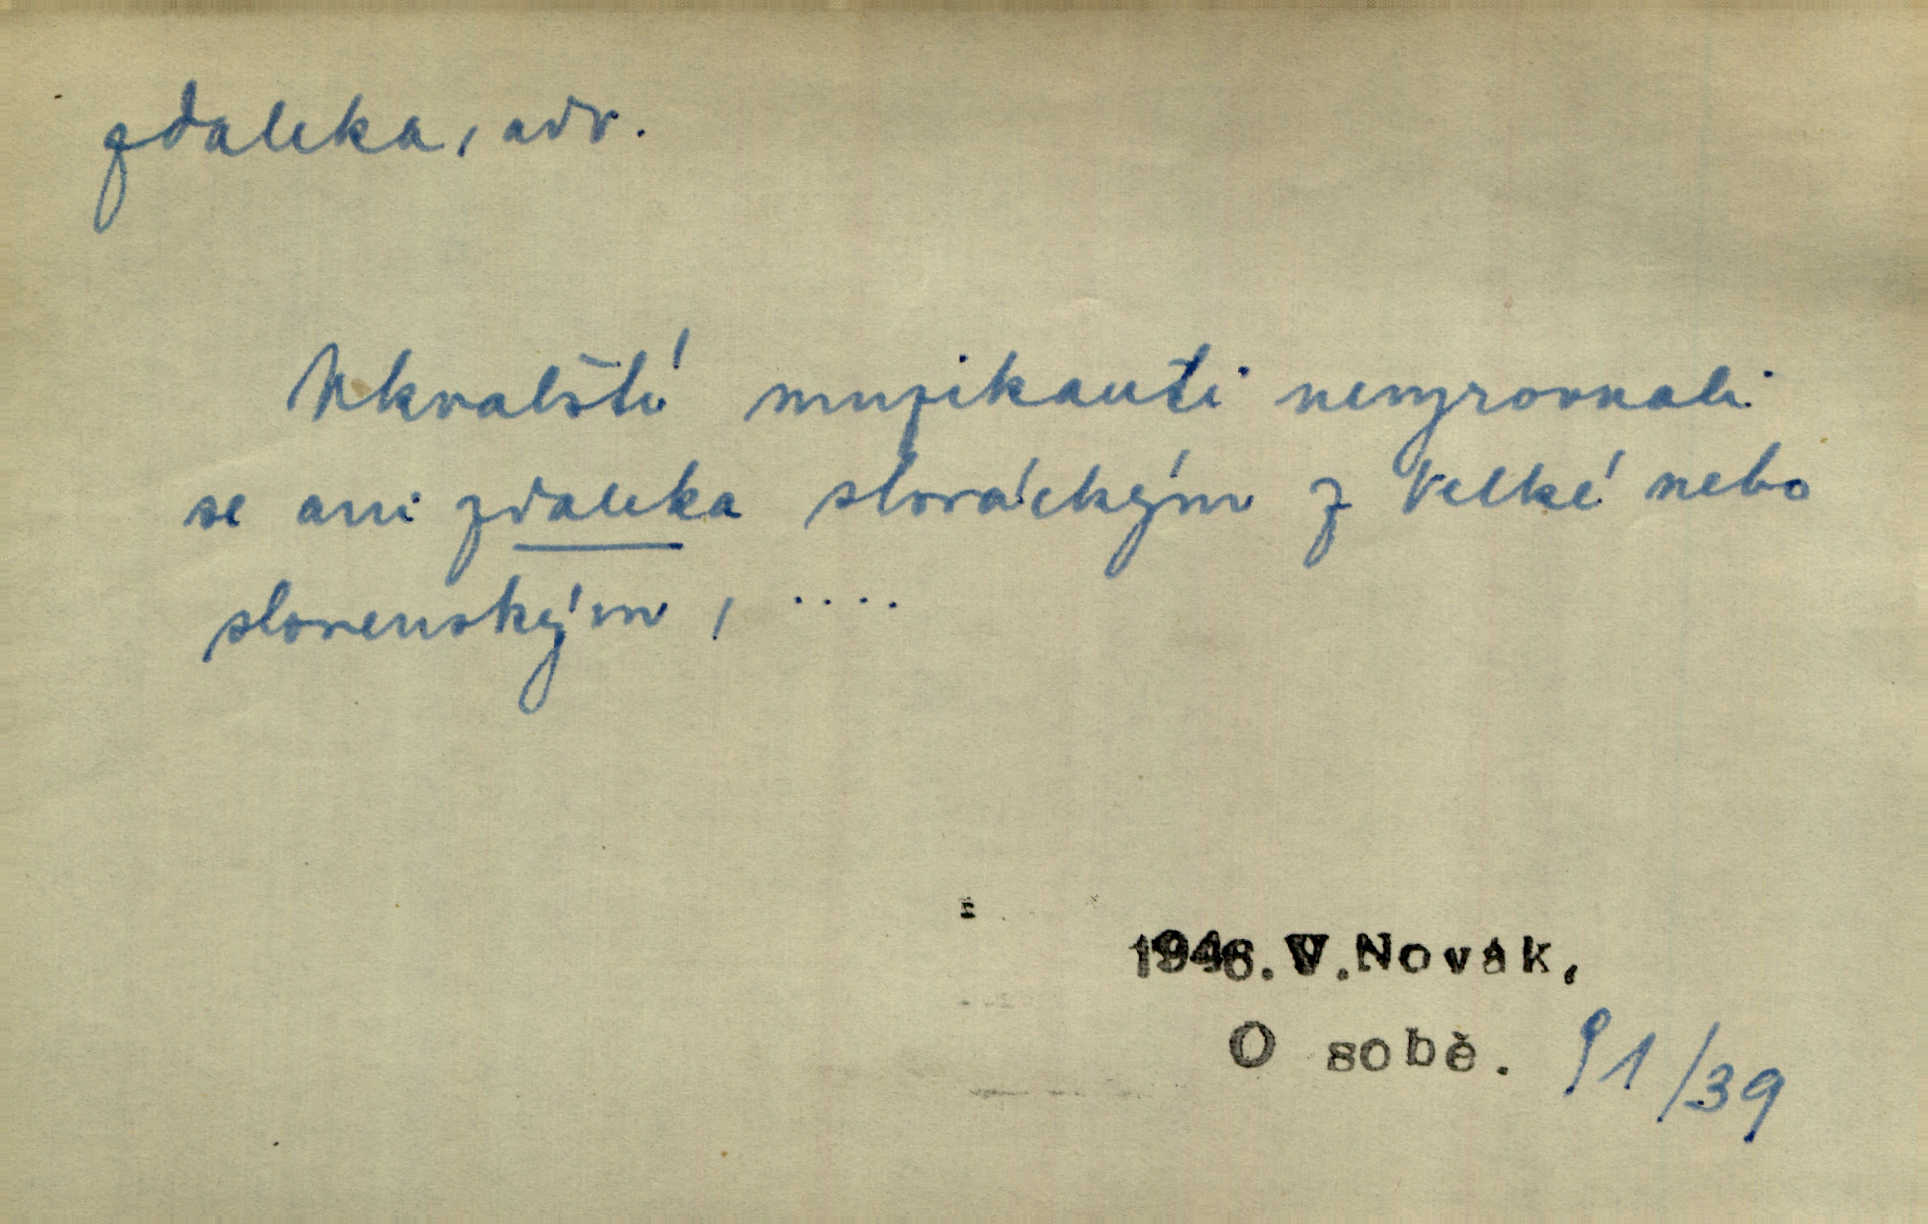 zdaleka, adv.
Hukvalští muzikanti nevyrovnali
se ani zdaleka slováckým z Velké nebo
slovenským, ....
1946. V. Novák,
O sobě. 91/39